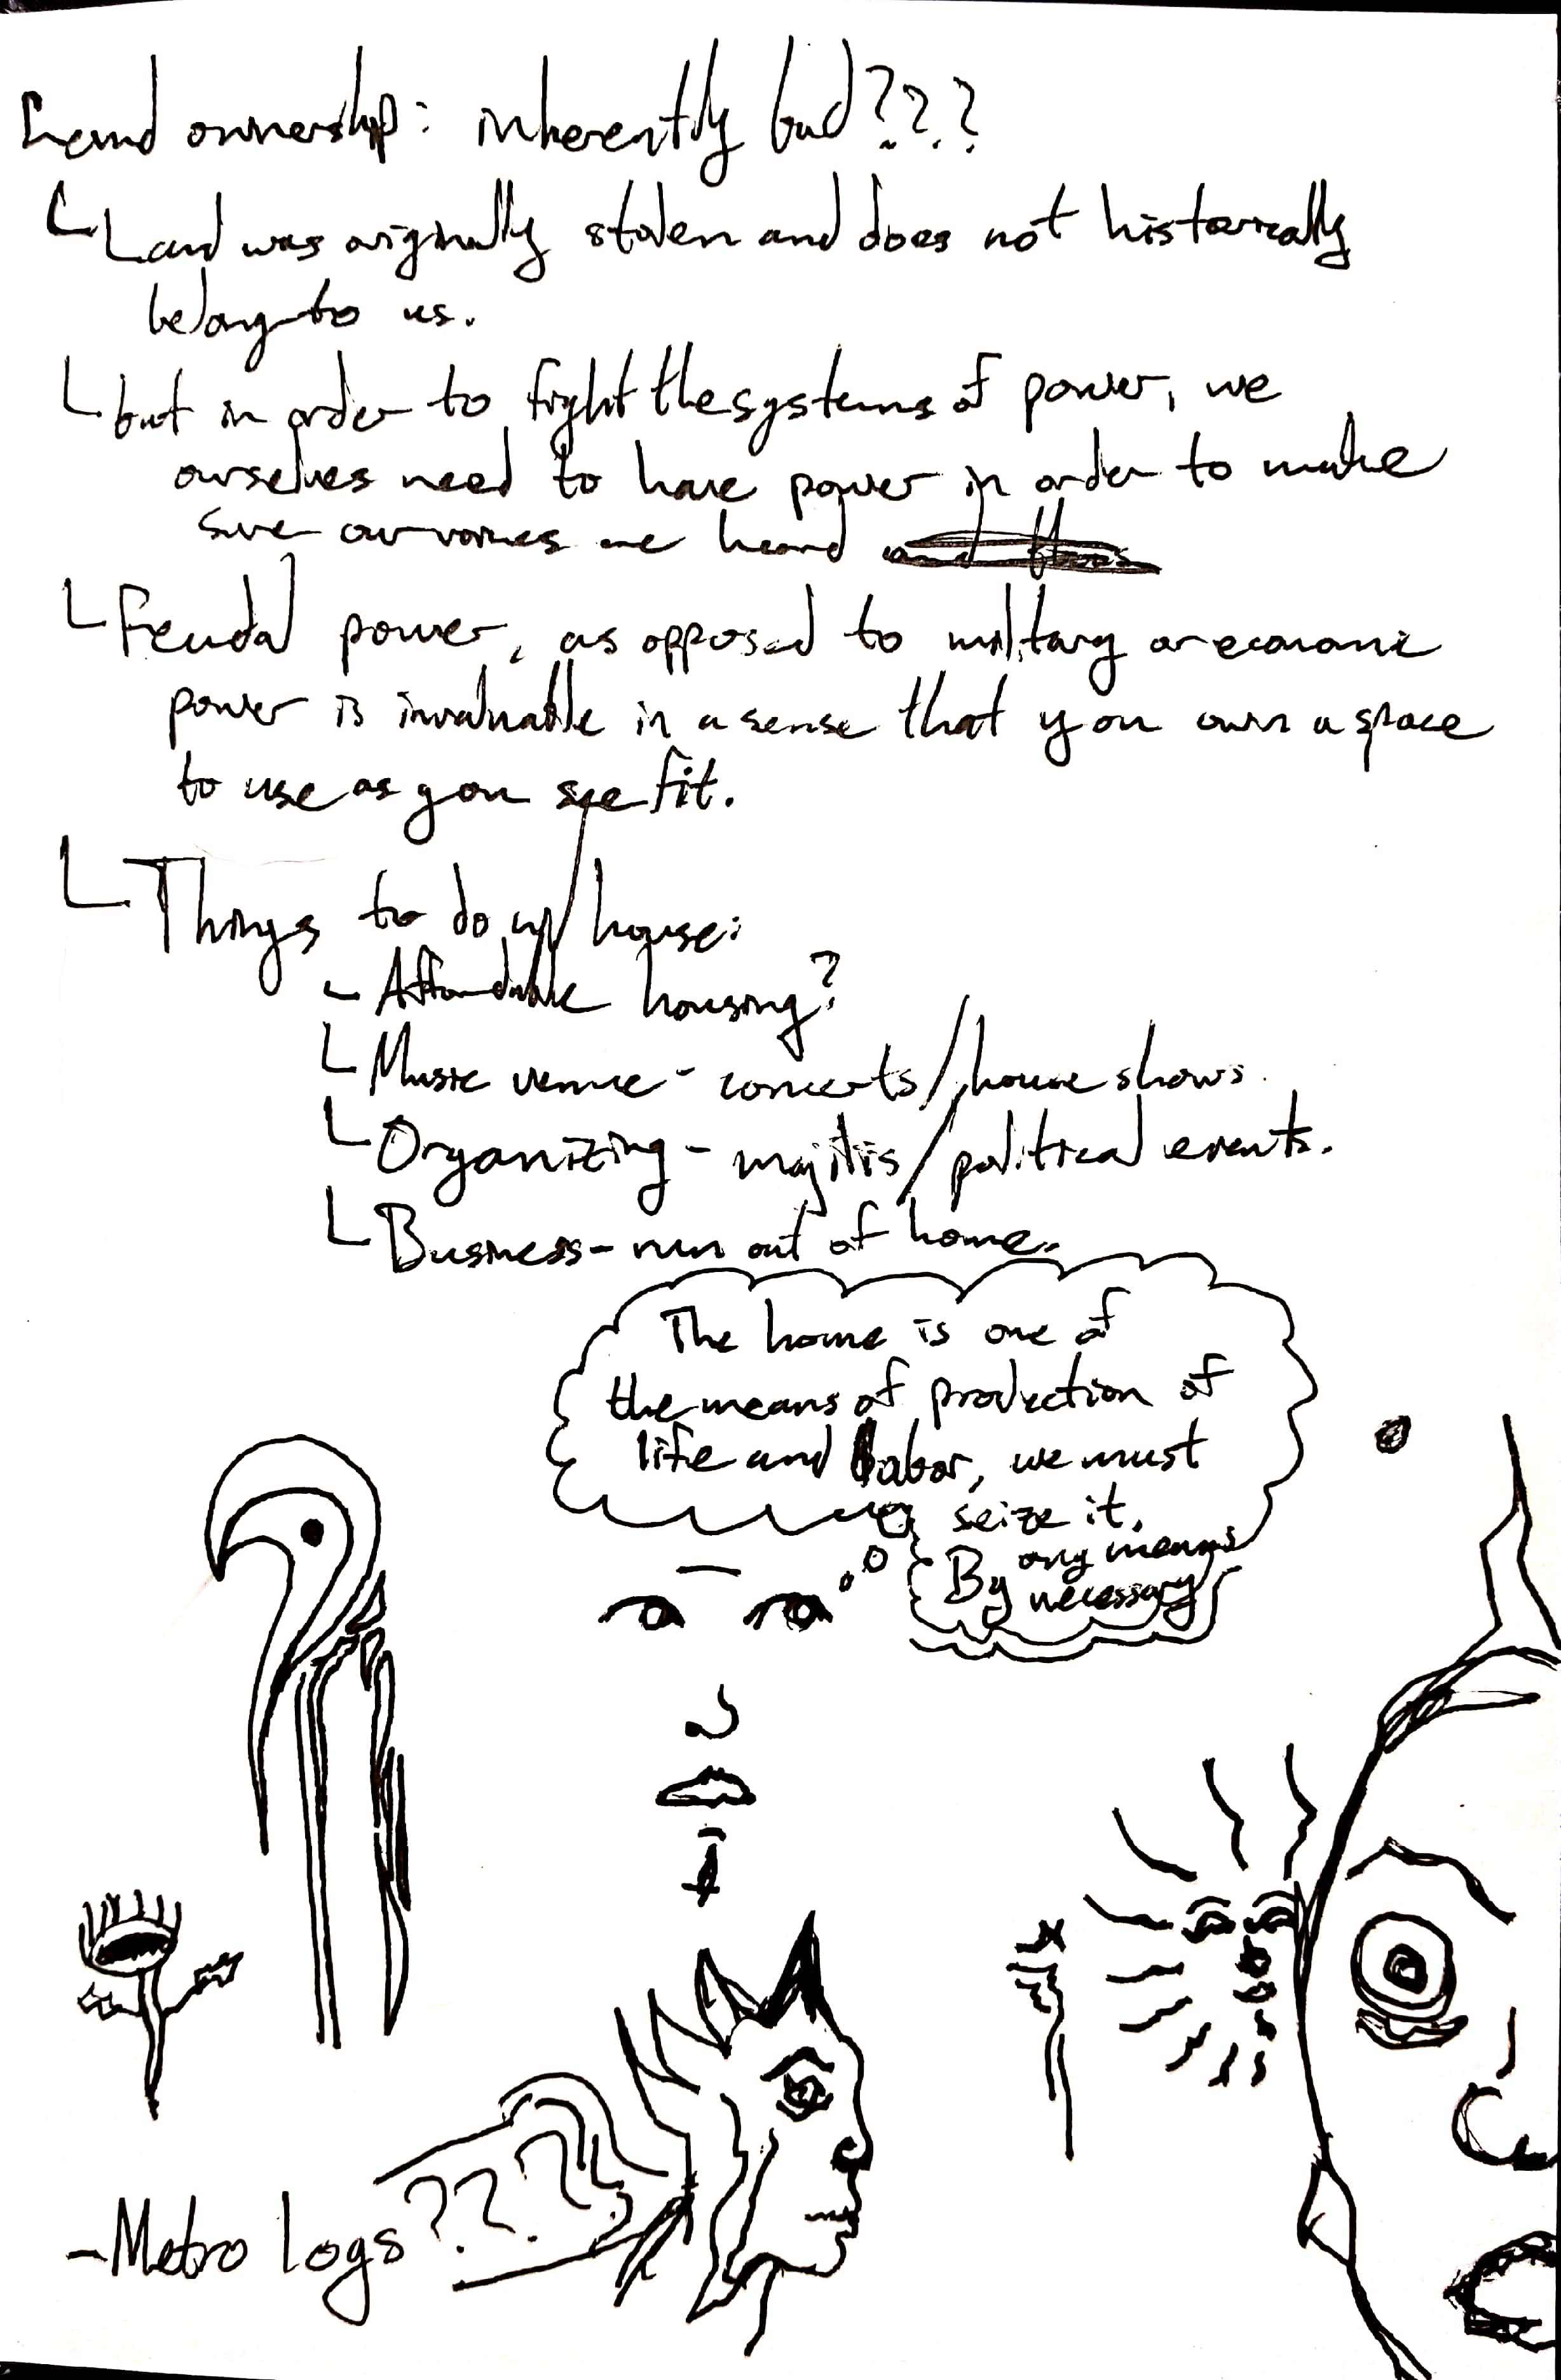 Land ownership: inherently bad???
Land was originally stolen and does not historically
belong to us.
but in order to fight the systems of power, we
ourselves need to have power in order to make
sure our voices are heard
Feudal power, as opposed to military or economic
power is invaluable in a sense that you own a space
to use as you see fit.
Things to do w/ house:
Affordable housing?
Music venue - concerts/house shows.
Organizing - majilis/political events.
Business - run out of home.
The home is one of
the means of production of
life and labor, we must
seize it.
By any means
necessary
- Metro logs???